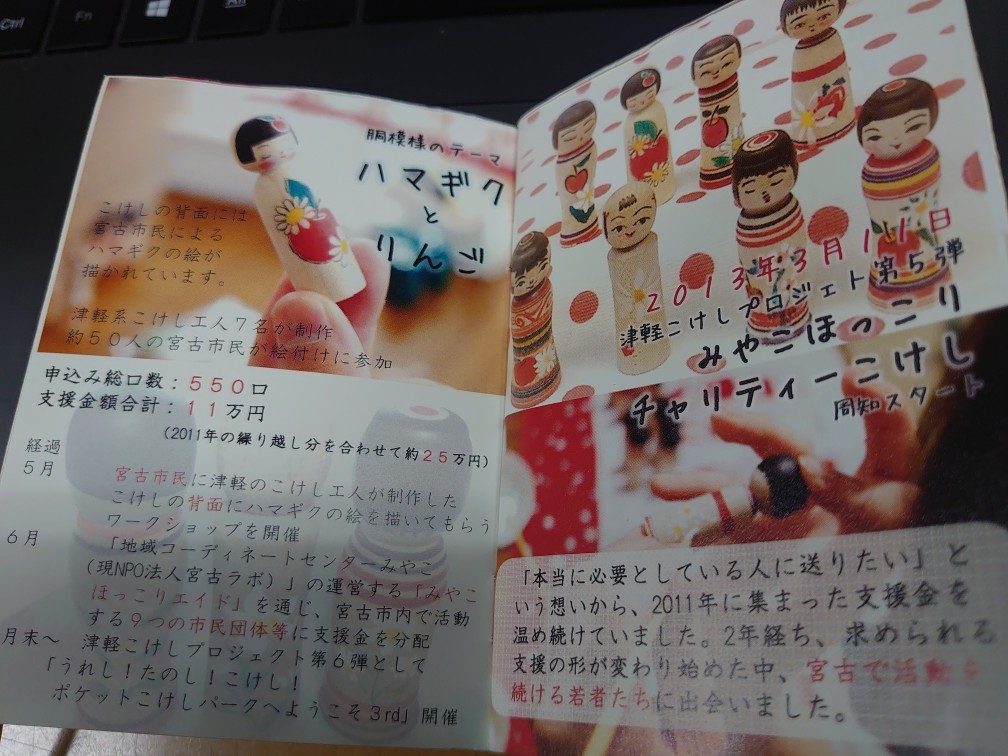 Ctrl
Fn
Alt
胴模様のテーマ
ハマギク
と
りんご
こけしの背面には
宮古市民による
ハマギクの絵が
描かれています。
津軽系こけし工人7名が制作
約50人の宮古市民が絵付けに参加
申込み総口数：550口
支援金額合計：11万円
(2011年の繰り越し分を合わせて約25万円)
経過
5月
宮古市民に津軽のこけし工人が制作した
こけしの背面にハマギクの絵を描いてもらう
ワークショップを開催
6月
「地域コーディネートセンターみやこ
(現NPO法人宮古ラボ)」の運営する「みやこ
ほっこりエイド」を通じ、宮古市内で活動
する9つの市民団体等に支援金を分配
月末～ 津軽こけしプロジェクト第6弾として
「うれし！たのし！こけし！
ポケットこけしパークへようこそ3rd」開催
2013年3月11日
津軽こけしプロジェクト第5弾
みやこほっこり
チャリティーこけし
周知スタート
「本当に必要としている人に送りたい」と
いう想いから、2011年に集まった支援金を
温め続けていました。2年経ち、求められる
支援の形が変わり始めた中、宮古で活動を
続ける若者たちに出会いました。